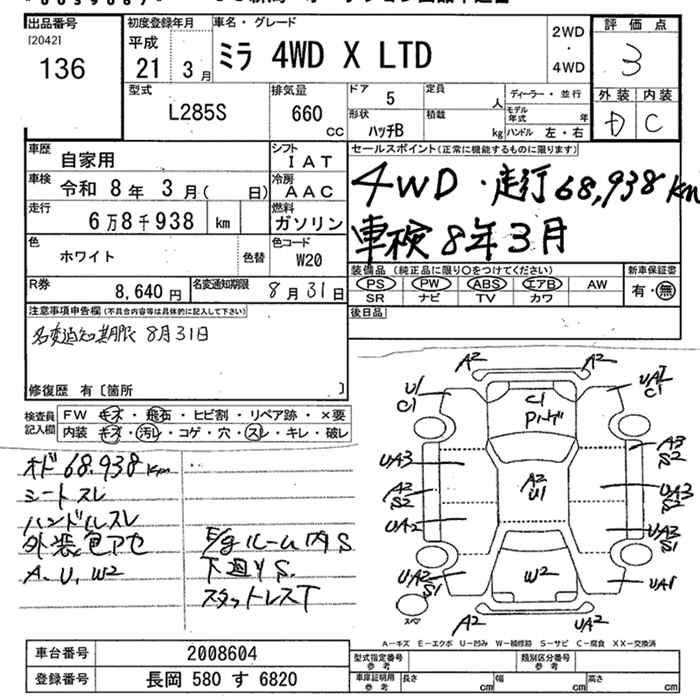 出品番号
[2042]
136
初度登録年月
平成
21年 3月
車名・グレード
ミラ 4WD X LTD
2WD
・
4WD
評価点
3
外装 内装
D C
型式
L285S
排気量
660
cc
ドア 5
形状 ハッチB
定員 人
積載 kg
ディーラー・並行
モデル年式 年
ハンドル 左・右
車歴 自家用
シフト IAT
車検 令和 8年 3月( 日)
冷房 AAC
走行 6万8千938 km
燃料 ガソリン
色 ホワイト 色替
色コード W20
R券 8,640円
名変通知期限 8月31日
セールスポイント(正常に機能するものに限ります)
4WD・走行68,938km
車検 8年3月
装備品 (純正品に限り〇をつけてください)
新車保証書
PS PW ABS エアB AW
有・無
SR ナビ TV カワ
後日品
注意事項申告欄(不具合内容等は具体的に記入して下さい)
名変通知期限 8月31日
修復歴 有〔箇所 〕
検査員記入欄
FW キズ・飛石・ヒビ割・リペア跡・×要
内装 キズ・汚レ・コゲ・穴・スレ・キレ・破レ
オド 68.938km
シートスレ
ハンドルスレ
外装色アセ
A. U. W2
E/gルーム内S
下廻りS.
スタットレスT
A2 A2
U1 C1
UA1 C1
C1
Pハゲ
UA3
A3 S2
A2 S2
A2 U1
UA3 S2
UA2
UA3 S1
UA2 S1
W2
UA1
スペ
A2 UA2
A-キズ E-エクボ U-凹み W-補修跡 S-サビ C-腐食 XX-交換済
車台番号 2008604
登録番号 長岡 580 す 6820
型式指定番号 参考
類別区分番号 参考
車庫証明用 参考 長さ cm 幅 cm 高さ cm